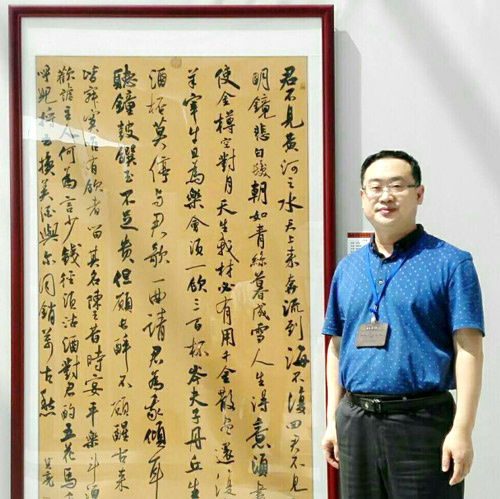 君不見黃河之水天上來奔流到海不復回君不見
明鏡悲白髮朝如青絲暮成雪人生得意須
使金樽空對月天生我材必有用千金散盡還復
羊宰牛且為樂會須一飲三百杯岑夫子丹丘生
酒杯莫停與君歌一曲請君為我傾耳
聽鐘鼓饌玉不足貴但願長醉不願醒古來
皆寂寞惟有飲者留其名陳王昔時宴平樂斗酒
歡謔主人何為言少錢徑須沽酒對君酌五花馬
呼兒將出換美酒與爾同銷萬古愁